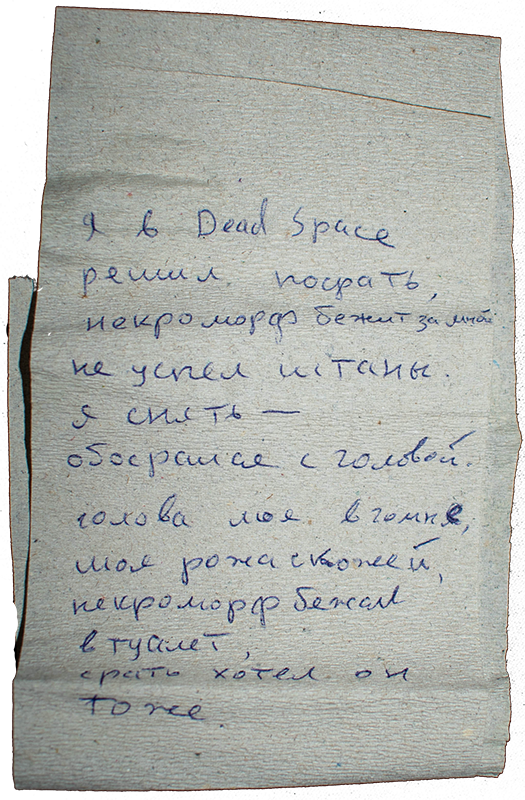 я в Dead Space
решил посрать,
некроморф бежит за мной
не успел штаны.
я снять —
обосрался с головой.
голова моя в гомне,
моя рожа с кожей,
некроморф бежал
в туалет,
срать хотел он
тоже.